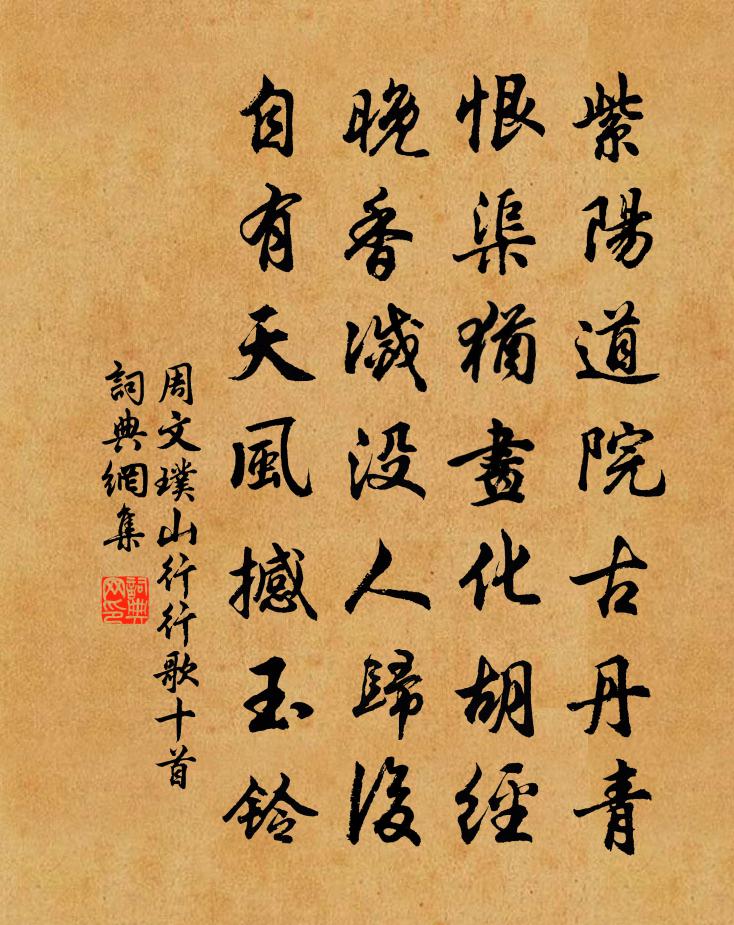 紫陽道院古丹青
恨渠猶畫化胡經
晚香滅沒人歸後
自有天風撼玉鈴
周文璞山行行歌十首
詞典網集
詞典網印